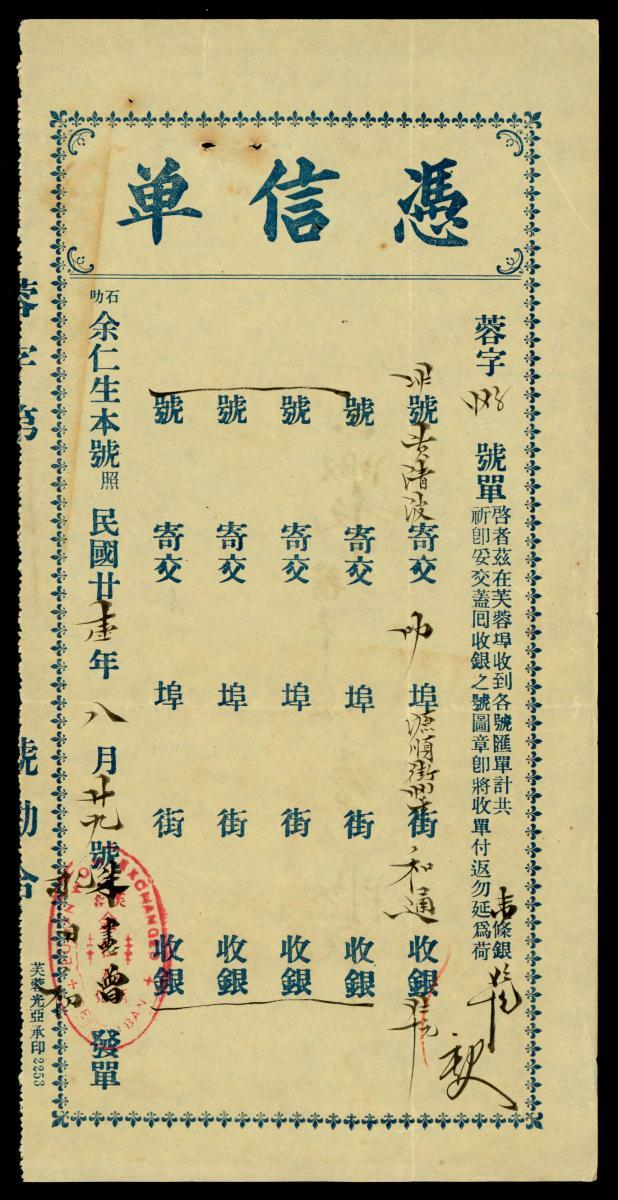 憑信单
蓉字 號單
啓者茲在芙蓉埠收到各號匯單計共 條銀
祈卽妥交蓋囘收銀之號圖章卽將收單付返勿延爲荷
號黃清波寄交 埠德順街 街和通 收銀
號 寄交 埠 街 收銀
號 寄交 埠 街 收銀
號 寄交 埠 街 收銀
號 寄交 埠 街 收銀
石叻余仁生本號照 民國廿壹年八月廿九號 發單
芙蓉光亞承印2253
蓉字第 號勘合
EXCHANGES